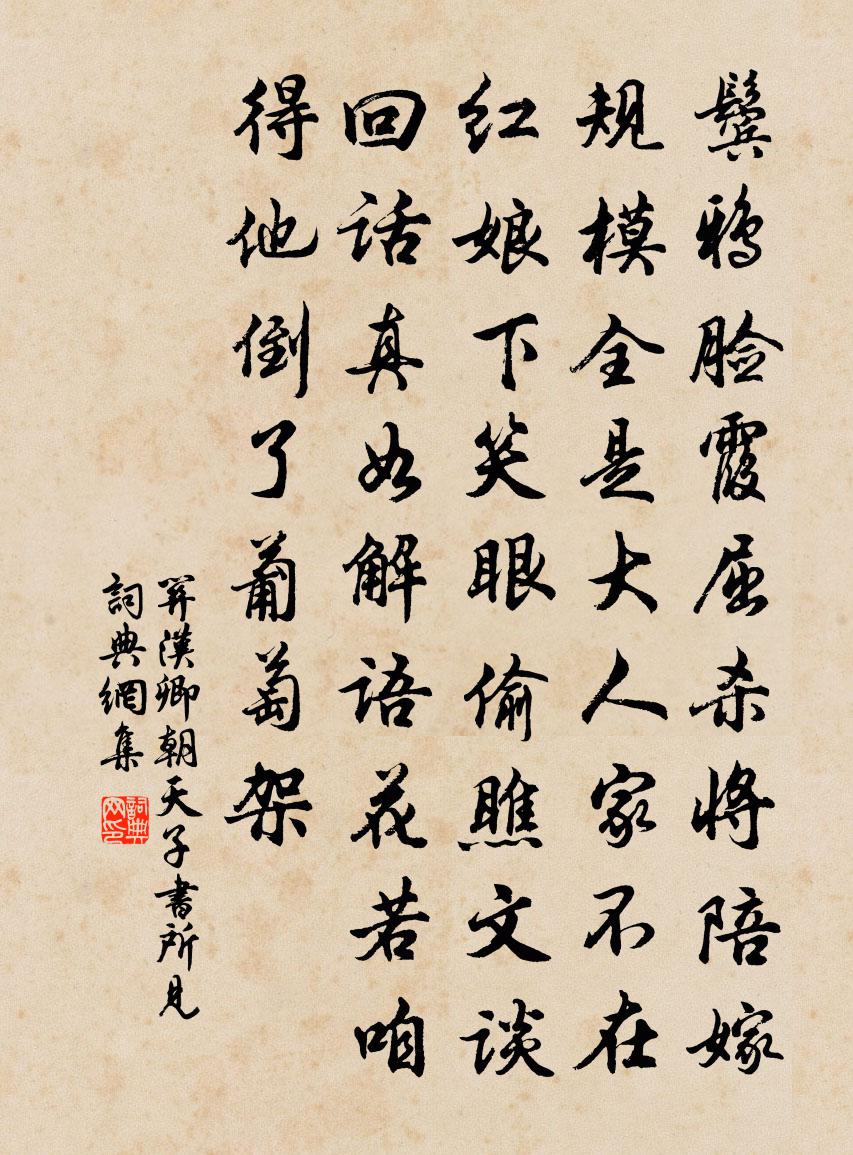 鬓鸦脸霞屈杀将陪嫁
规模全是大人家不在
红娘下笑眼偷瞧文谈
回话真如解语花若咱
得他倒了葡萄架
關漢卿朝天子書所見
詞典網集
詞典网印